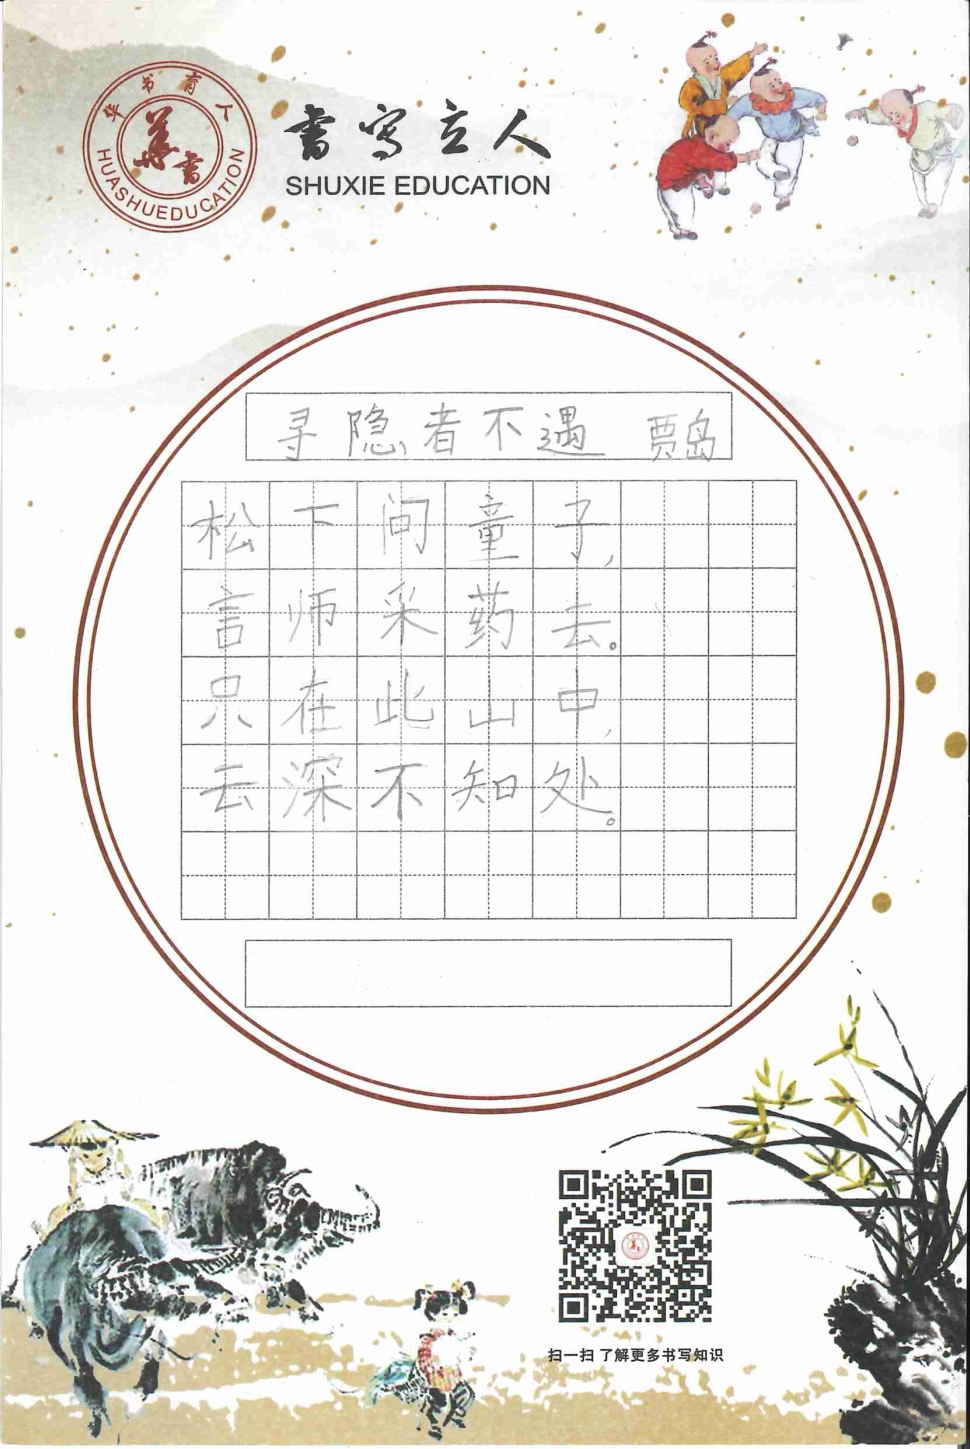 华书育人
華書
HUASHUEDUCATION
书写立人
SHUXIE EDUCATION
寻隐者不遇 贾岛
松下问童子,
言师采药去。
只在此山中,
云深不知处。
扫一扫 了解更多书写知识